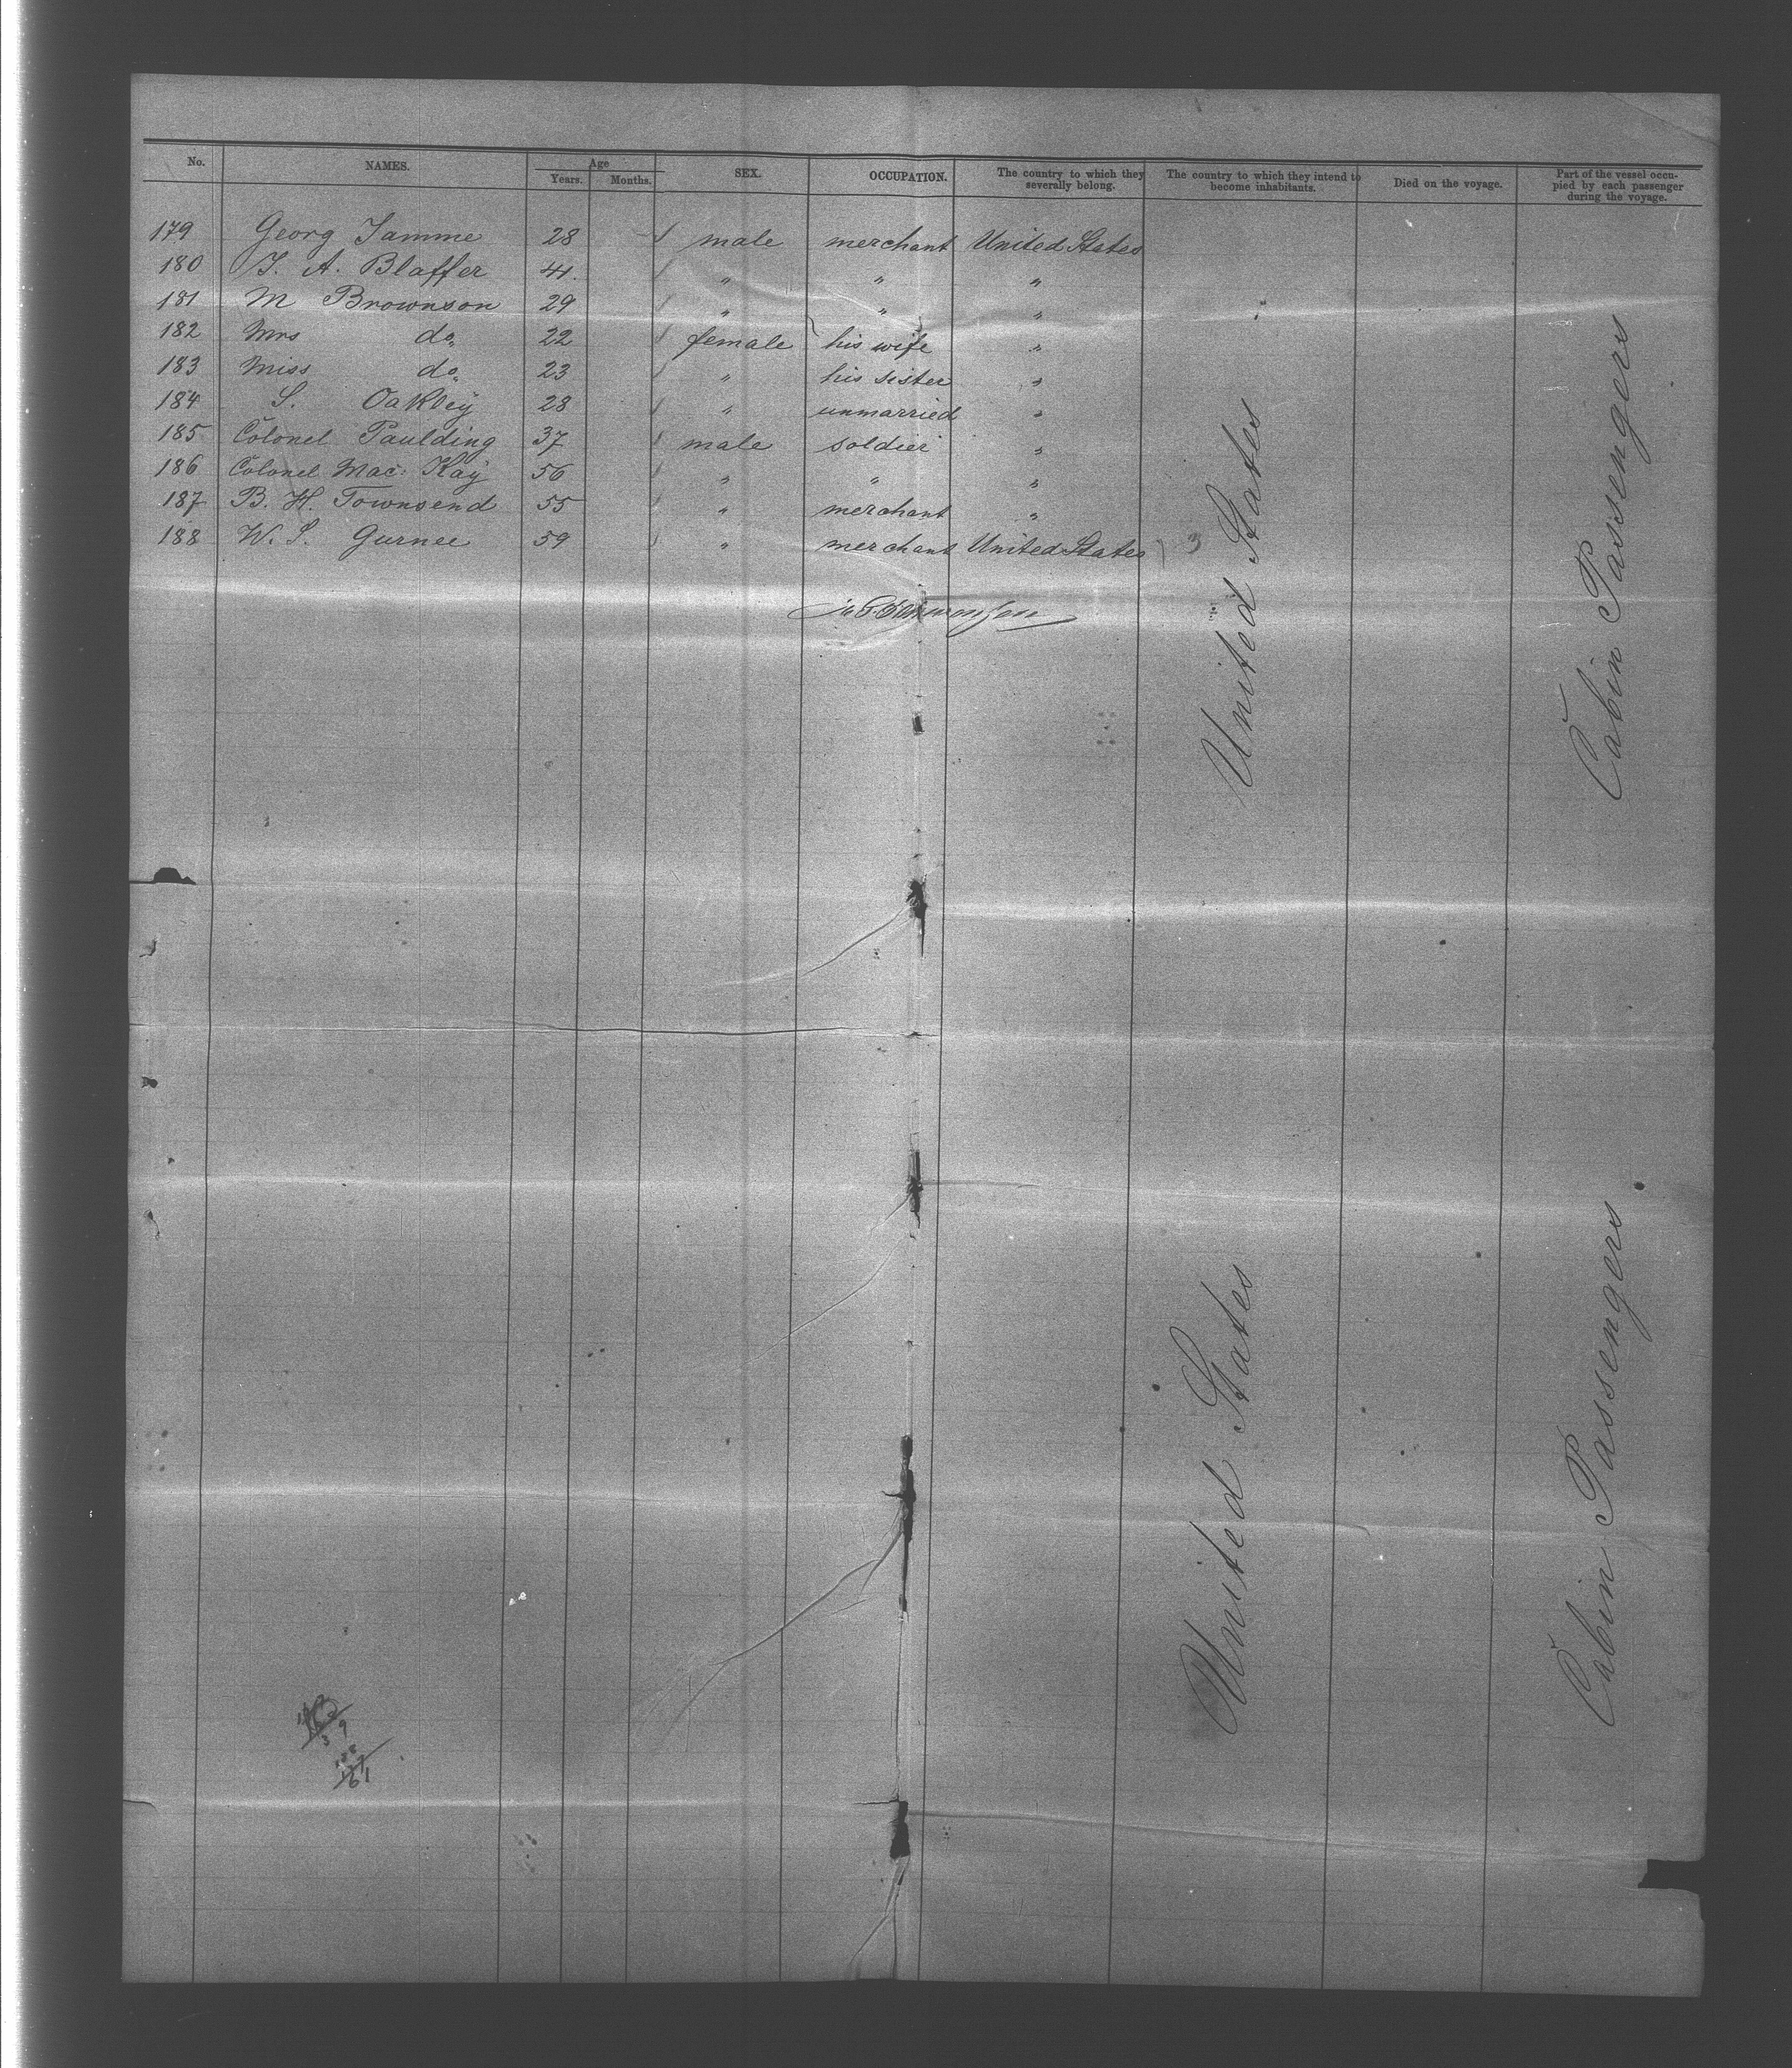 No. NAMES. Age Years. Months. SEX. OCCUPATION. The country to which they severally belong. The country to which they intend to become inhabitants. Died on the voyage. Part of the vessel occupied by each passenger during the voyage.
179 Georg Tamme 28 male merchant United States
180 J. A. Blaffer 41. " " "
181 M Brownson 29 " " "
182 Mrs do. 22 female his wife "
183 Miss do. 23 " his sister "
184 S. Oakley 28 " unmarried "
185 Colonel Paulding 37 male soldier "
186 Colonel Mac Kay 56 " " "
187 B. H. Townsend 55 " merchant "
188 W. S. Gurnee 59 " merchant United States
United States
Cabin Passengers
United States
Cabin Passengers